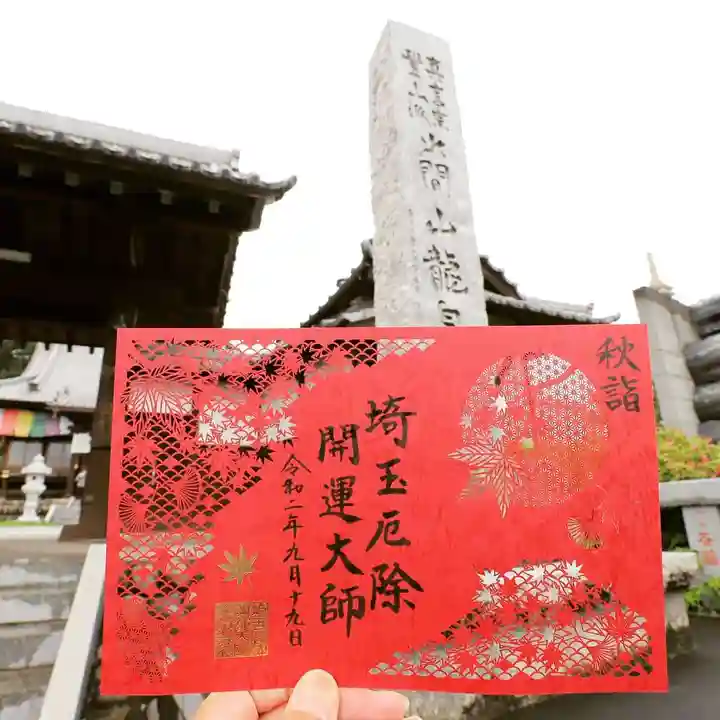 真言宗
智山派
火間山龍泉
秋詣
埼玉厄除
開運大師
令和二年九月十九日